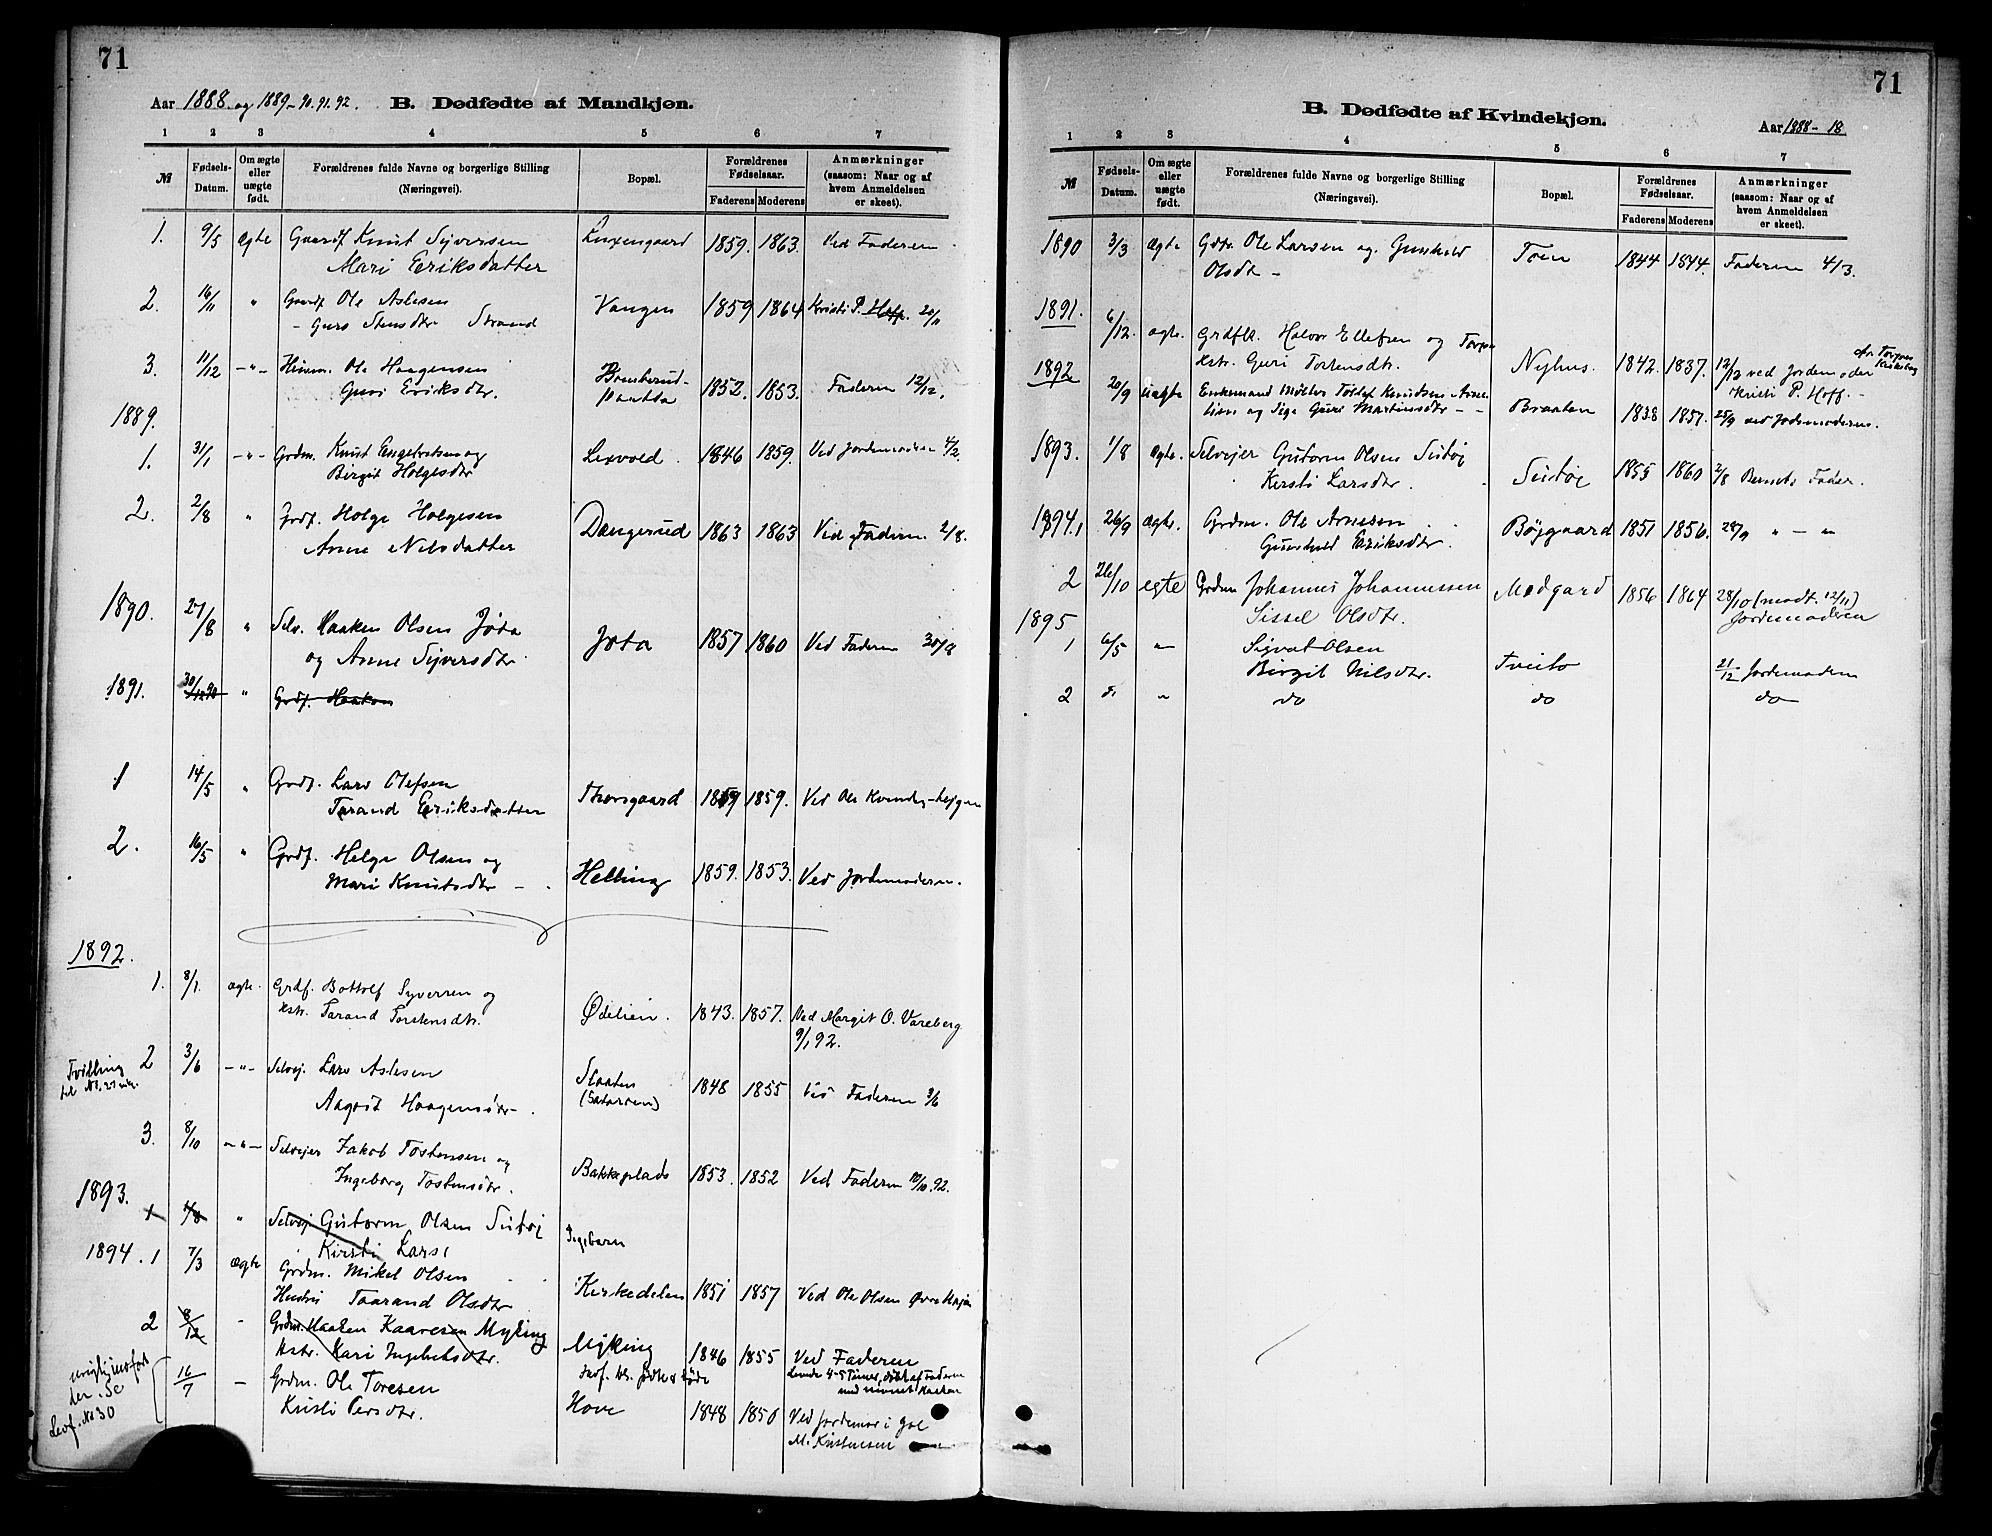 71
Aar 1888 og 1889-90.91.92. B. Dødfødte af Mandkjøn.
1 2 3 4 5 6 7
№ Fødsels-Datum. Om ægte eller uægte født. Forældrenes fulde Navne og borgerlige Stilling (Næringsvei). Bopæl. Forældrenes Fødselsaar. Faderens Moderens Anmærkninger (saasom: Naar og af hvem Anmeldelsen er skeet).
1. 9/5 Ægte Gaardf Knut Syversen 1859. 1863. Ved Faderen
Mari Eriksdatter
2. 16/11 " Gaardf Ole Aslesen Vangen 1859 1864 Kristi P. Hoff. 20/11
- Guro Stensdtr Strand
3. 11/12 -"- Ole Haagensen 1852. 1853. Faderen 12/12.
Guri Eriksdtr.
1889.
1. 31/1 -"- Grdm. Knut Engebretsen og Lexvold 1846 1859. Ved Jordemoderen 4/2.
Birgit Holgesdtr
2. 2/8 " Grdf. Holge Holgesen Dængerud 1863 1863 Ved Faderen 2/8.
Anne Nilsdatter
1890. 27/8 " Selv. Haaken Olsen Jøta Jøta 1857 1860 Ved Faderen 30/8
og Anne Syversdtr.
1891. 30/12 90 " Grdf. Haakon
1 14/5 " Grdf. Lars Olefsen Thorsgaard 1859 1859. Ved Ole
Tarand Eriksdatter
2. 16/5 " Grdf. Helge Olsen og Helling 1859. 1853. Ved Jordemoderen.
Mari Knutsdtr -
1892.
1. 8/1. ægte. Grdf. Bottolf Syversen og Ødelien. 1843. 1857. Ved Margit O. Vareberg
Kstr. Tarand Torstensdtr. 9/1 92.
Tvilling
2 3/6 -"- Selvej. Lars Aslesen Slaaten 1848 1855 Ved Faderen 3/6
Aagot Haagensdtr.
3. 8/10 -"- Selvejer Jakob Tostensen og Bakkeplads 1853. 1852 Ved Faderen 10/10 92.
Ingeborg Tostensdtr.
1893.
1 1/8 " Selvej Gutorm Olsen Sutøj Pigebarn
Kirsti Lars
1894. 1 7/3 Ægte Grdm. Mikel Olsen Kirkedelen 1851 1857 Ved Ole Olsen Øvre
Hustru Taarand Olsdtr
2 8/12 - Grdm. Haaken Kaaresen Myking Myking 1846 1855 Ved Faderen
Kstr. Kari Ingebretsdtr. Levede 4-5 Timer, døbt af Faderen
med navnet Haakon
16/7 - Grdm. Ole Toresen Hove 1848 1850 Ved Jordemor i Gol
Kristi Persdtr. M. Kristensen
den. Se
Levf. № 30
71
B. Dødfødte af Kvindekjøn. Aar 1888-18
1 2 3 4 5 6 7
№ Fødsels-Datum. Om ægte eller uægte født. Forældrenes fulde Navne og borgerlige Stilling (Næringsvei). Bopæl. Forældrenes Fødselsaar. Faderens Moderens Anmærkninger (saasom: Naar og af hvem Anmeldelsen er skeet).
1890 3/3 Ægte Gdbr. Ole Larsen og Gunhild Toen 1844 1844. Faderen 4/3.
Olsdtr -
1891. 6/12. ægte. Grdflk. Halvor Ellefsen og
Kstr. Guri Tostensdtr. Nyhus. 1842. 1837. 12/12 ved Jordemoder
Kristi P. Hoff. -
1892 20/9 uægte Enkemand Tostef Knudsen
og Pige Guri Martinsdtr - - Braaten 1838 1857. 25/9 ved Jordemoderen.
1893. 1/8 Ægte. Selvejer Gutorm Olsen Sutøj Sutøj 1855 1860 2/8 Barnets Fader.
Kersti Larsdtr.
1894. 1 26/9 ægte. Grdm. Ole Arnesen Bøygaard 1851 1856. 28/9 " - "
Gunhild Eriksdtr.
2 26/10 egte Grdm Johannes Johannessen Medgard 1856 1864 28/10 (modt. 12/11)
Sissel Olsdtr. Jordemoderen
1895
1 6/5 " Sigvat Olsen Tveito 21/12 Jordemoderen
Birgit Nilsdtr.
2 " do do do